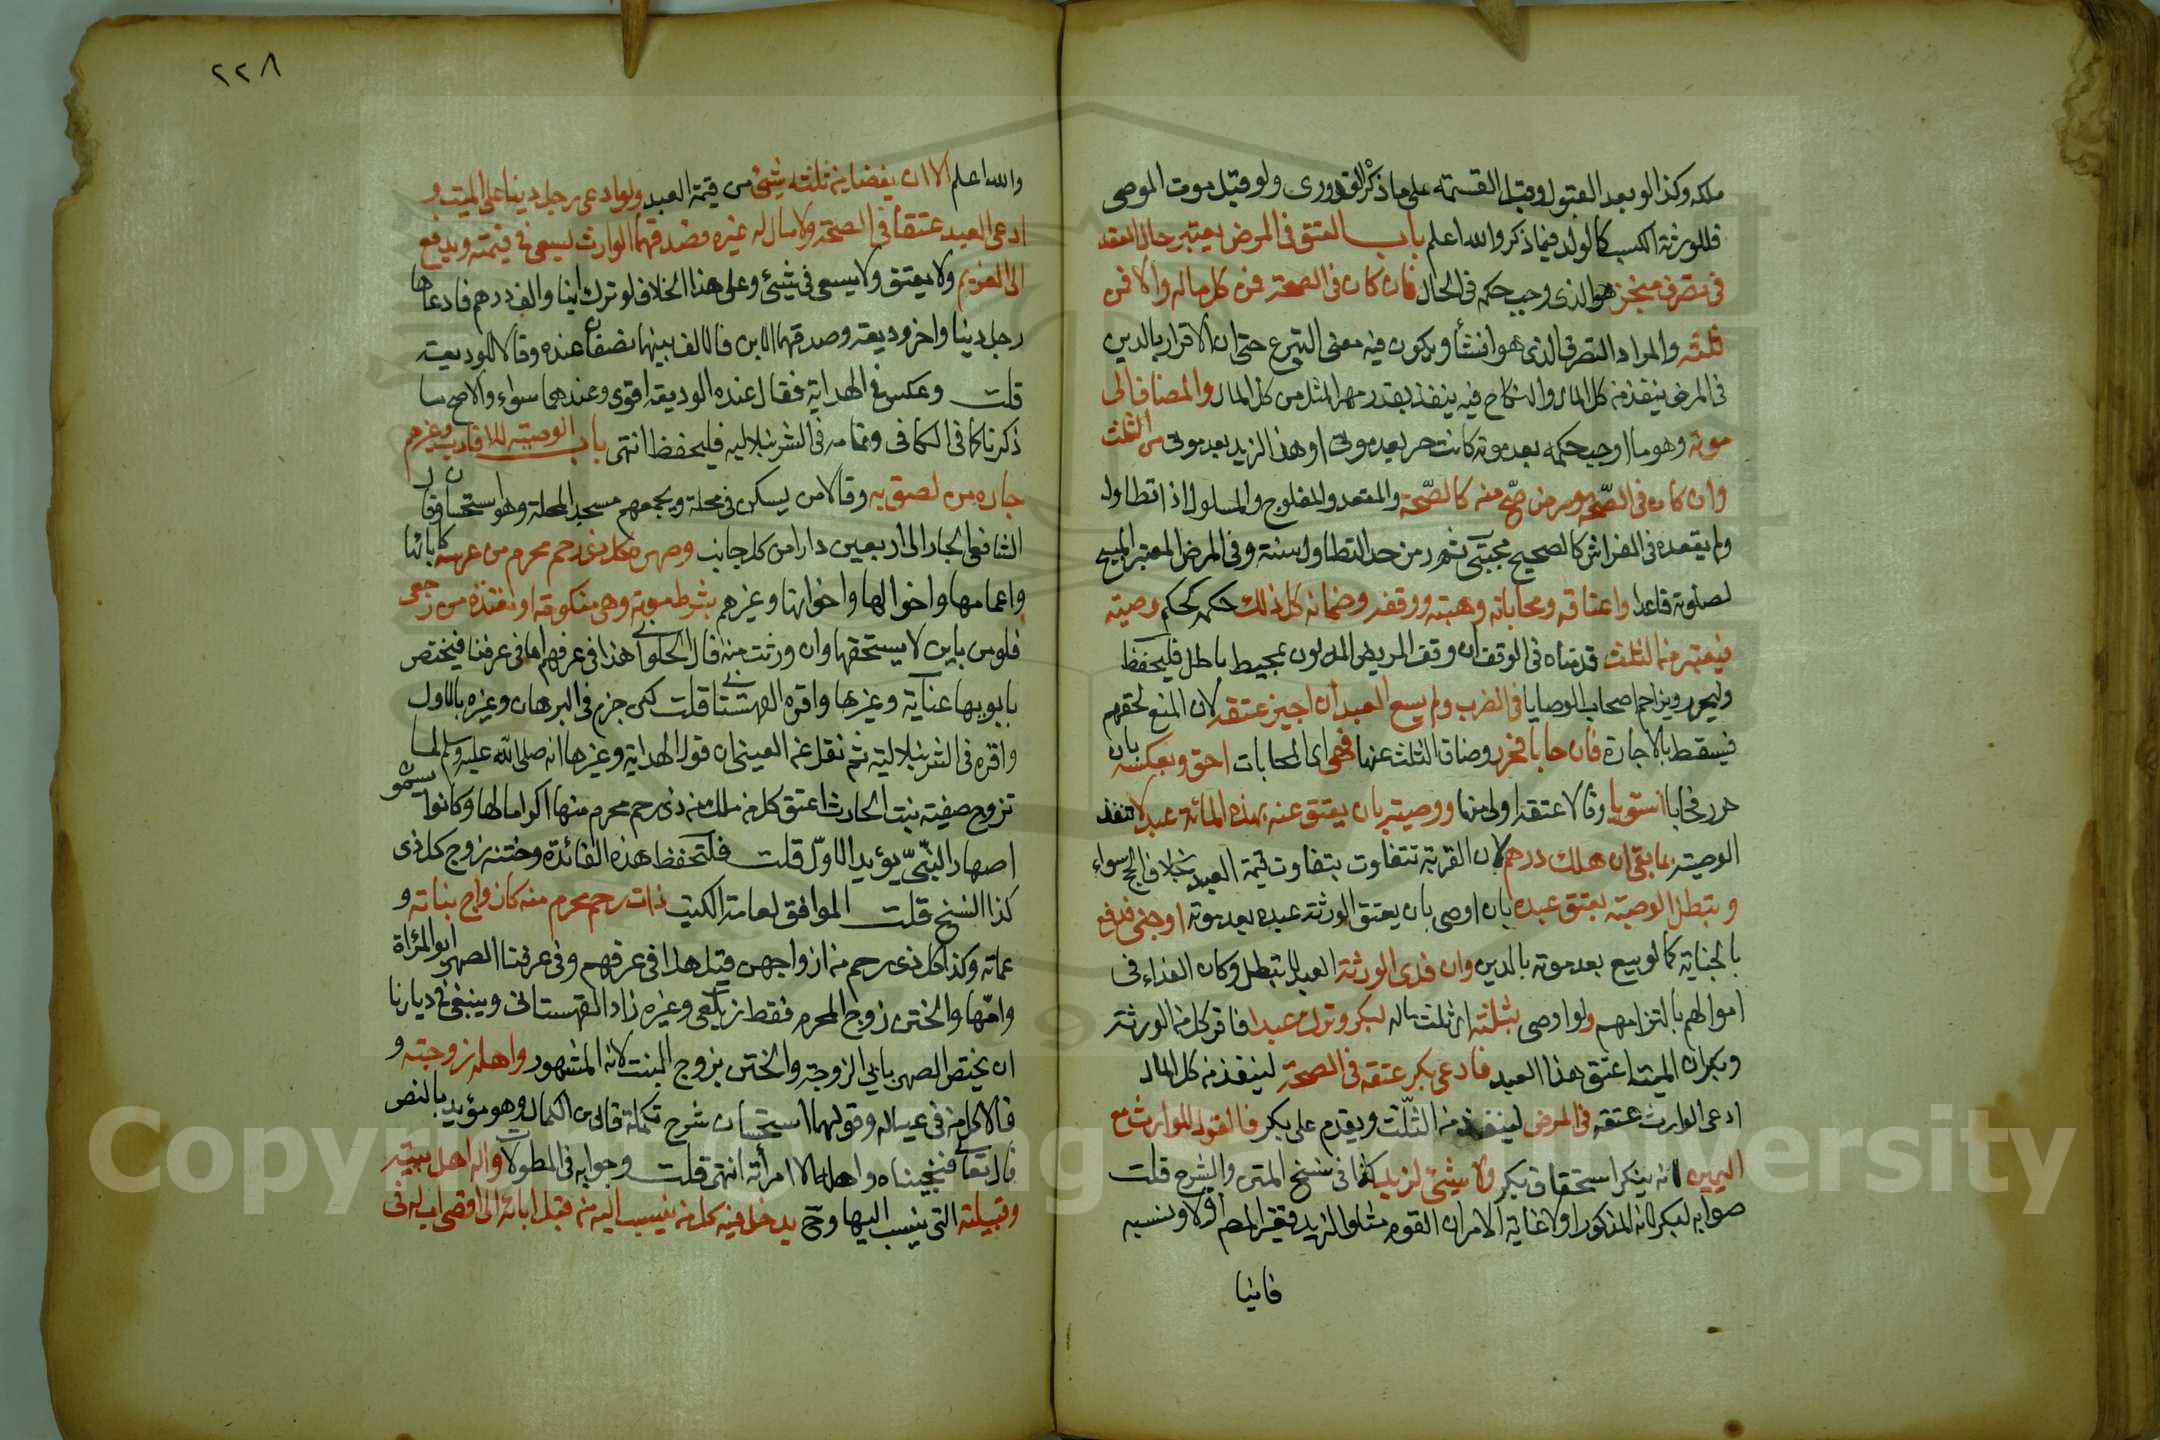 ملكه وكذا لو بعد القبول وقبل القسمة على ما ذكر القدوري ولو قبل موت الموصي
فللورثة الكسب كالولد فيما ذكر والله اعلم باب العتق في المرض يعتبر حال العقد
في تصرف منجز هو الذي وجب حكمه في الحال فان كان في الصحة فمن كل ماله والا فمن
ثلثه والمراد التصرف الذي هو انشأ ويكون فيه معنى التبرع حتى ان الاقرار بالدين
في المرض ينفذ من كل المال والنكاح فيه ينفذ بقدر مهر المثل من كل المال والمضاف الى
موته وهو ما اوجب حكمه بعد موته كانت حر بعد موتي او هذا لزيد بعد موتي من الثلث
وان كان في الصحة ومرض صح منه كالصحة والمقعد والمفلوج والمسلول اذا تطاول
ولم يقعده في الفراش كالصحيح مجتبى ثم رمز حد التطاول سنة وفي المرض المعتبر المبيح
لصلوته قاعدا واعتاقه ومحاباته وهبته ووقفه وضمانه كل ذلك حكمه كحكم وصيته
فيعتبر من الثلث قدمناه في الوقف ان وقف المريض المديون بمحيط باطل فليحفظ
وليحرر ويزاحم اصحاب الوصايا في الضرب ولم يسع العبد ان اجيز عتقه لان المنع لحقهم
فيسقط بالاجازة فان حابا فحرر وضاق الثلث عنها فهي اي المحابات احق وبعكسه بان
حرر فحابا استويا وقالا عتقه اولى منها ووصيته بان يعتق عنه بهذه المائة عبد لا تنفذ
الوصية بما بقي ان هلك درهم لان القربة تتفاوت بتفاوت قيمة العبد بخلاف الحج سواء
وتبطل الوصية بعتق عبده بان اوصى بان يعتق الورثة عبده بعد موته او جنى فدفع
بالجناية كما لو بيع بعد موته بالدين وان فدى الورثة العبد لا تبطل وكان الفداء في
اموالهم بالتزامهم ولو اوصى بثلثه اي ثلث ماله لبكر وترك عبدا فاقر كل من الورثة
وبكر ان الميت اعتق هذا العبد فادعى بكر عتقه في الصحة لينفذ من كل المال
ادعى الوارث عتقه في المرض لينفذ من الثلث ويقدم على بكر فالقول للوارث مع
اليمين لانه ينكر استحقاق بكر ولا شيئ لزيد كذا في نسخ المتن والشرح قلت
صوابه لبكر لانه المذكور اولا غاية الامر ان القوم مثلوا لزيد فغير المص اولا ونسبه
فانيا
٢٢٨
والله اعلم الا ان يفضل من ثلثه شيئ من قيمة العبد ولو ادعى رجل دينا على الميت و
ادعى العبد عتقا في الصحة ولا مال له غيره فصدقهما الوارث ليسعى في قيمته ويدفع
الى الغريم ولا يعتق ولا يسعى في شيئ وعلى هذا الخلاف لو ترك ابنا والف درهم فادعاها
رجل دينا واخر وديعة وصدقهما الابن فالالف بينهما نصفان عنده وقالا للوديعة
قلت وعكس في الهداية فقال عنده الوديعة اقوى وعندهما سواء والاصح ما
ذكرنا كما في الكافي وتمامه في الشرنبلالية فليحفظ انتهى باب الوصية للاقارب وغيرهم
جاره من لصق به وقالا من يسكن في محلة ويجمعهم مسجد المحلة وهو استحسان وقال
الشافعي الجار الى اربعين دارا من كل جانب وصهره كل ذي رحم محرم من عرسه كابائها
واعمامها واخوالها واخواتها وغيرهم بشرط موته وهي منكوحته او معتدته من رجعي
فلو من باين لا يستحقها وان ورثت منه قال الحلواني هذا في عرفهم اما في عرفنا فيختص
بابويها عناية وغيرها واقره القهستاني قلت لكن جزم في البرهان وغيره بالاول
واقره في الشرنبلالية ثم نقل عن العيني ان قول الهداية وغيرها انه صلى الله عليه وسلم لما
تزوج صفية بنت الحارث اعتق كل من ملك من ذي رحم محرم منها اكراما لها وكانوا يسمون
اصهار النبي يؤيد الاول قلت فلتحفظ هذه الفائدة وختنه زوج كل ذي
كذا النسخ قلت الموافق لعامة الكتب ذات رحم محرم منه كازواج بناته و
عماته وكذا كل ذي رحم من ازواجهن قيل هذا في عرفهم وفي عرفنا الصهر ابو المرأة
وامها والختن زوج المحرم فقط زيلعي وغيره زاد القهستاني وينبغي في ديارنا
ان يختص الصهر بابي الزوجة والختن بزوج البنت لانه المشهور واهله زوجته و
قالا كل من في عياله وقولهما استحسان شرح تكملة قال ابن الكمال وهو مؤيد بالنص
قال تعالى فنجيناه واهله الا امرأته انتهى قلت وجوابه في المطولات واله اهل بيته
وقبيلته التي ينسب اليها وح يدخل فيه كل من ينسب اليه من قبل ابائه الى اقصى اب له في